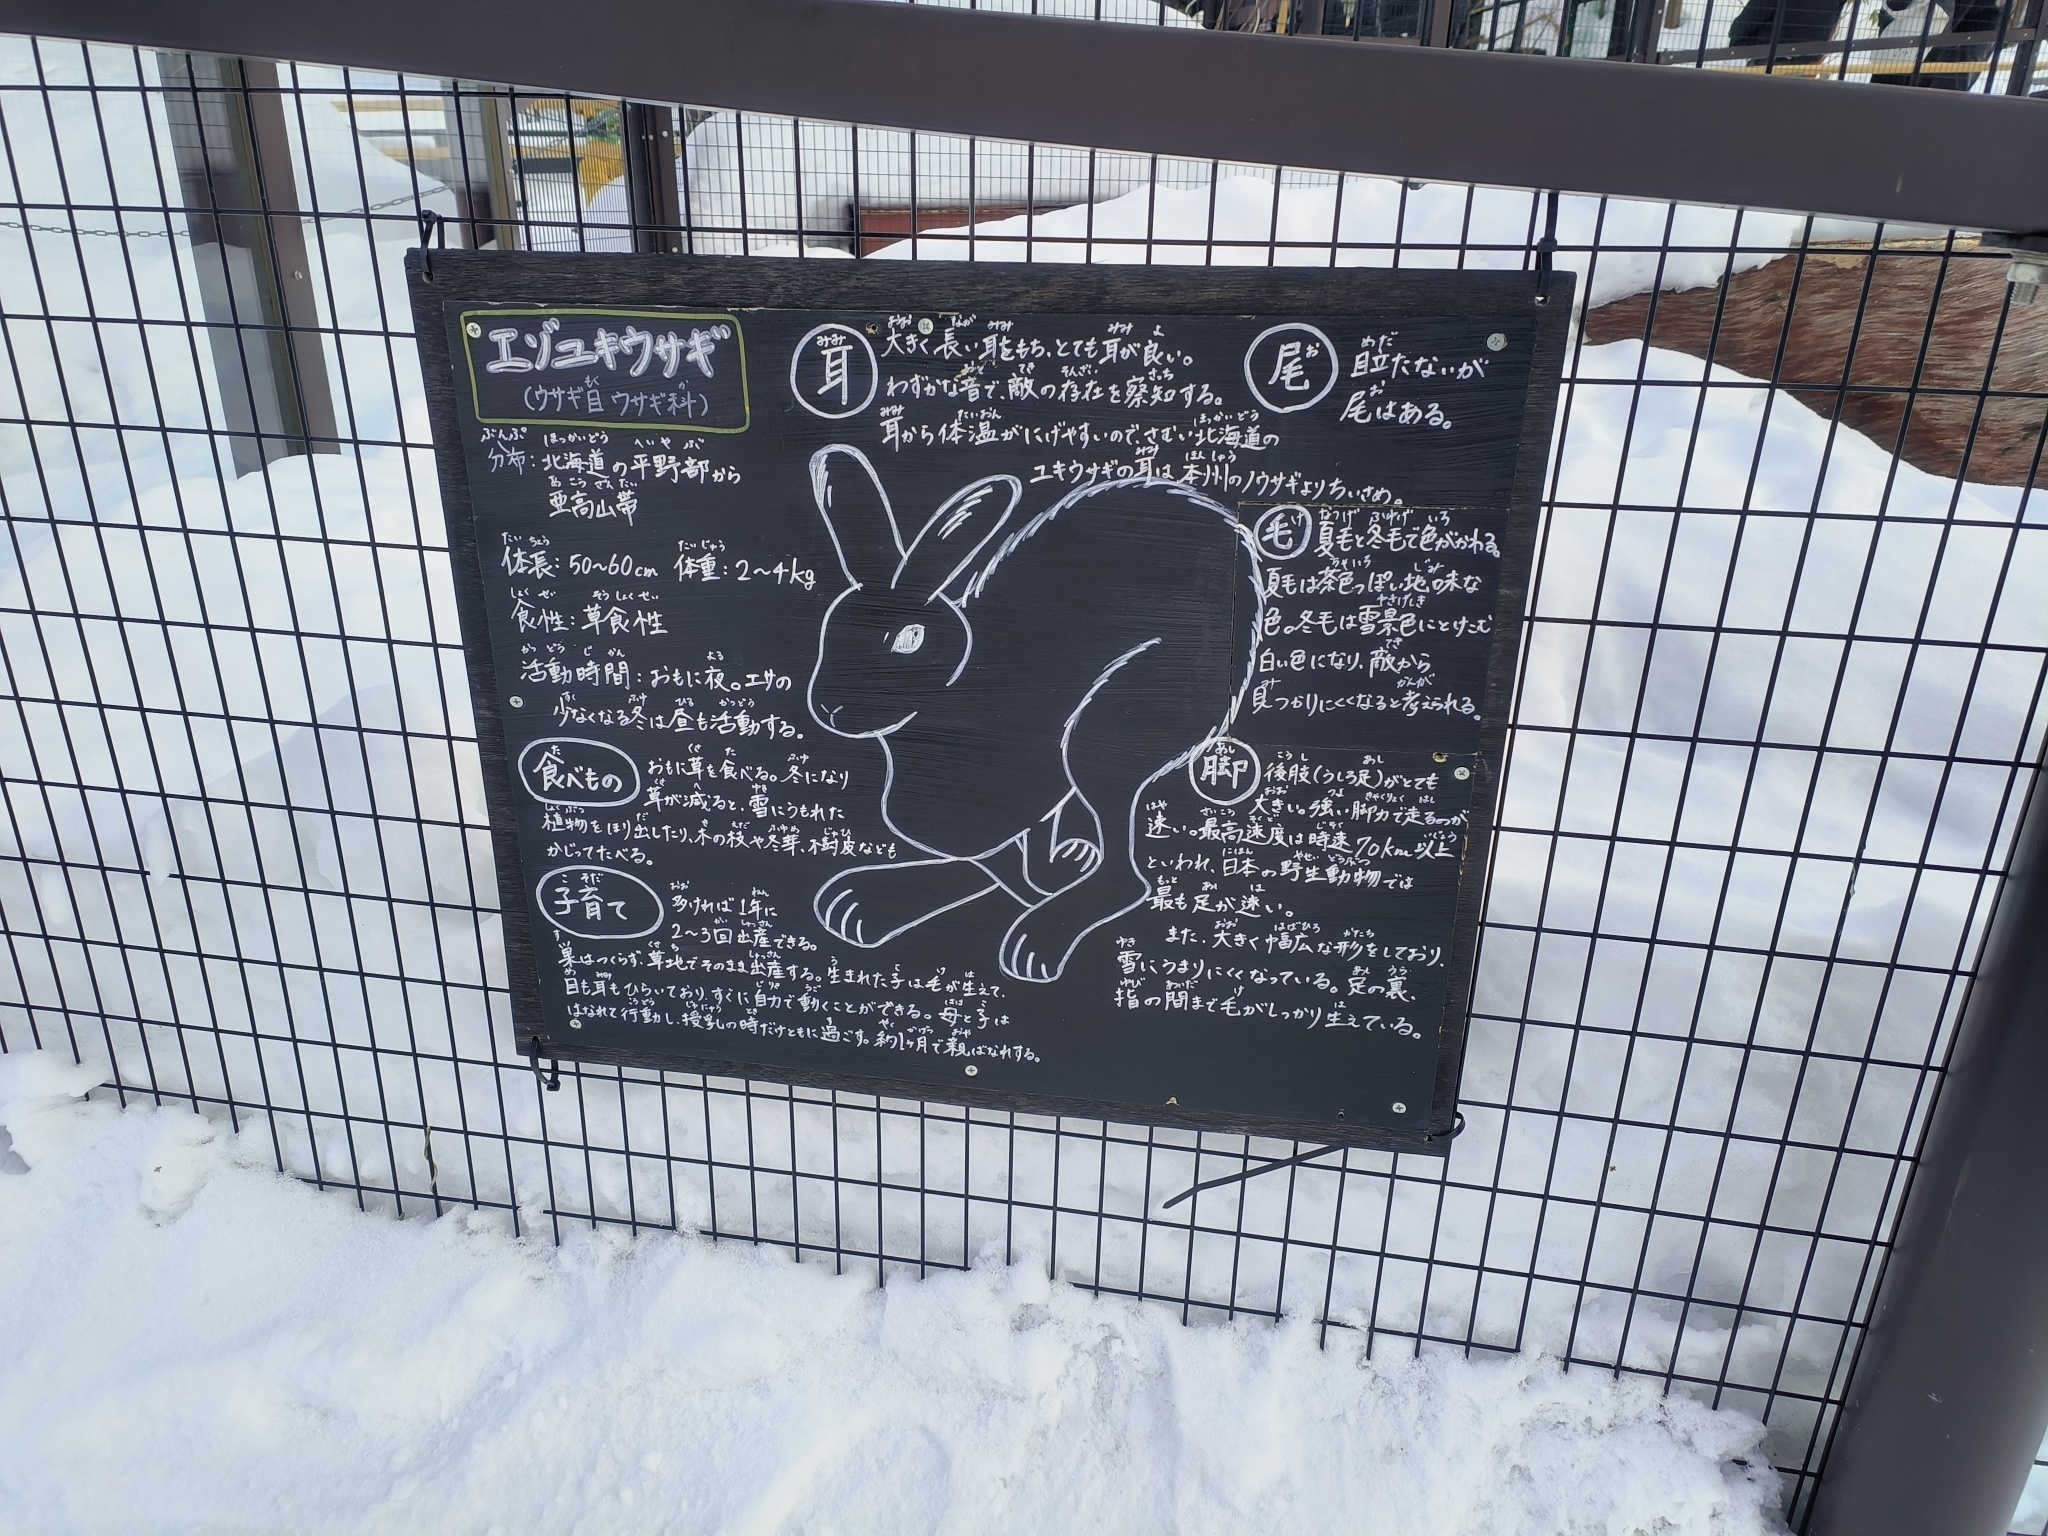 エゾユキウサギ
(ウサギ目 ウサギ科)
分布:北海道の平野部から
亜高山帯
体長:50~60cm 体重:2~4kg
食性:草食性
活動時間:おもに夜。エサの
少なくなる冬は昼も活動する。
食べもの
おもに草を食べる。冬になり
草が減ると、雪にうもれた
植物をほり出したり、木の枝や冬芽、樹皮なども
かじってたべる。
子育て
多ければ1年に
2~3回出産できる。
巣はつくらず、草地でそのまま出産する。生まれた子は毛が生えて、
目も耳もひらいており、すぐに自力で動くことができる。母と子は
はなれて行動し、授乳の時だけともに過ごす。約1ヶ月で親ばなれする。
耳
大きく長い耳をもち、とても耳が良い。
わずかな音で、敵の存在を察知する。
耳から体温がにげやすいので、さむい北海道の
ユキウサギの耳は、本州のノウサギよりちいさめ。
尾
目立たないが
尾はある。
毛
夏毛と冬毛で色がかわる。
夏毛は茶色っぽい地味な
色。冬毛は雪景色にとけこむ
白い色になり、敵から
見つかりにくくなると考えられる。
脚
後肢(うしろ足)がとても
大きい。強い脚力で走るのが
速い。最高速度は時速70km以上
といわれ、日本の野生動物では
最も足が速い。
また、大きく幅広な形をしており、
雪にうまりにくくなっている。足の裏、
指の間まで毛がしっかり生えている。